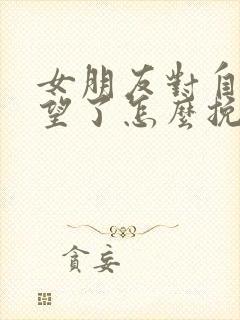 女朋友對自
望了怎麼挽
貪妄